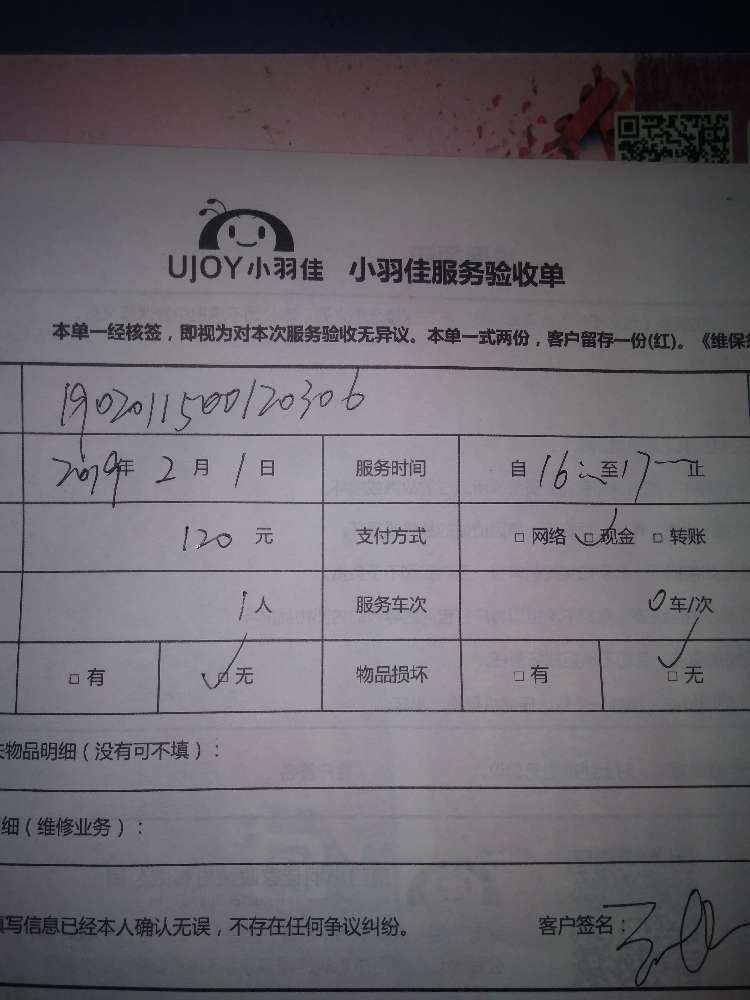 UJOY小羽佳 小羽佳服务验收单
本单一经核签，即视为对本次服务验收无异议。本单一式两份，客户留存一份(红)。《维保
1902011500120306
2019年 2月 1日 服务时间 自16 至17 止
120元 支付方式 □网络 □现金 □转账
1人 服务车次 0车/次
□有 □无 物品损坏 □有 □无
物品明细（没有可不填）：
细（维修业务）：
填写信息已经本人确认无误，不存在任何争议纠纷。 客户签名：